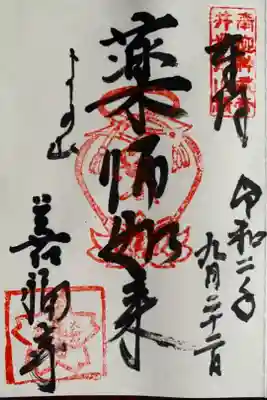 奉拝
令和二年
九月二十二日
薬師如来
よしの山
善福寺